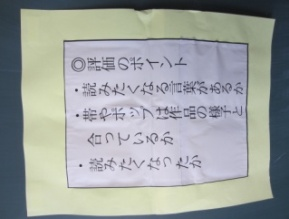 ◎評価のポイント
・読みたくなる言葉があるか
・帯やポップは作品の様子と
合っているか
・読みたくなったか